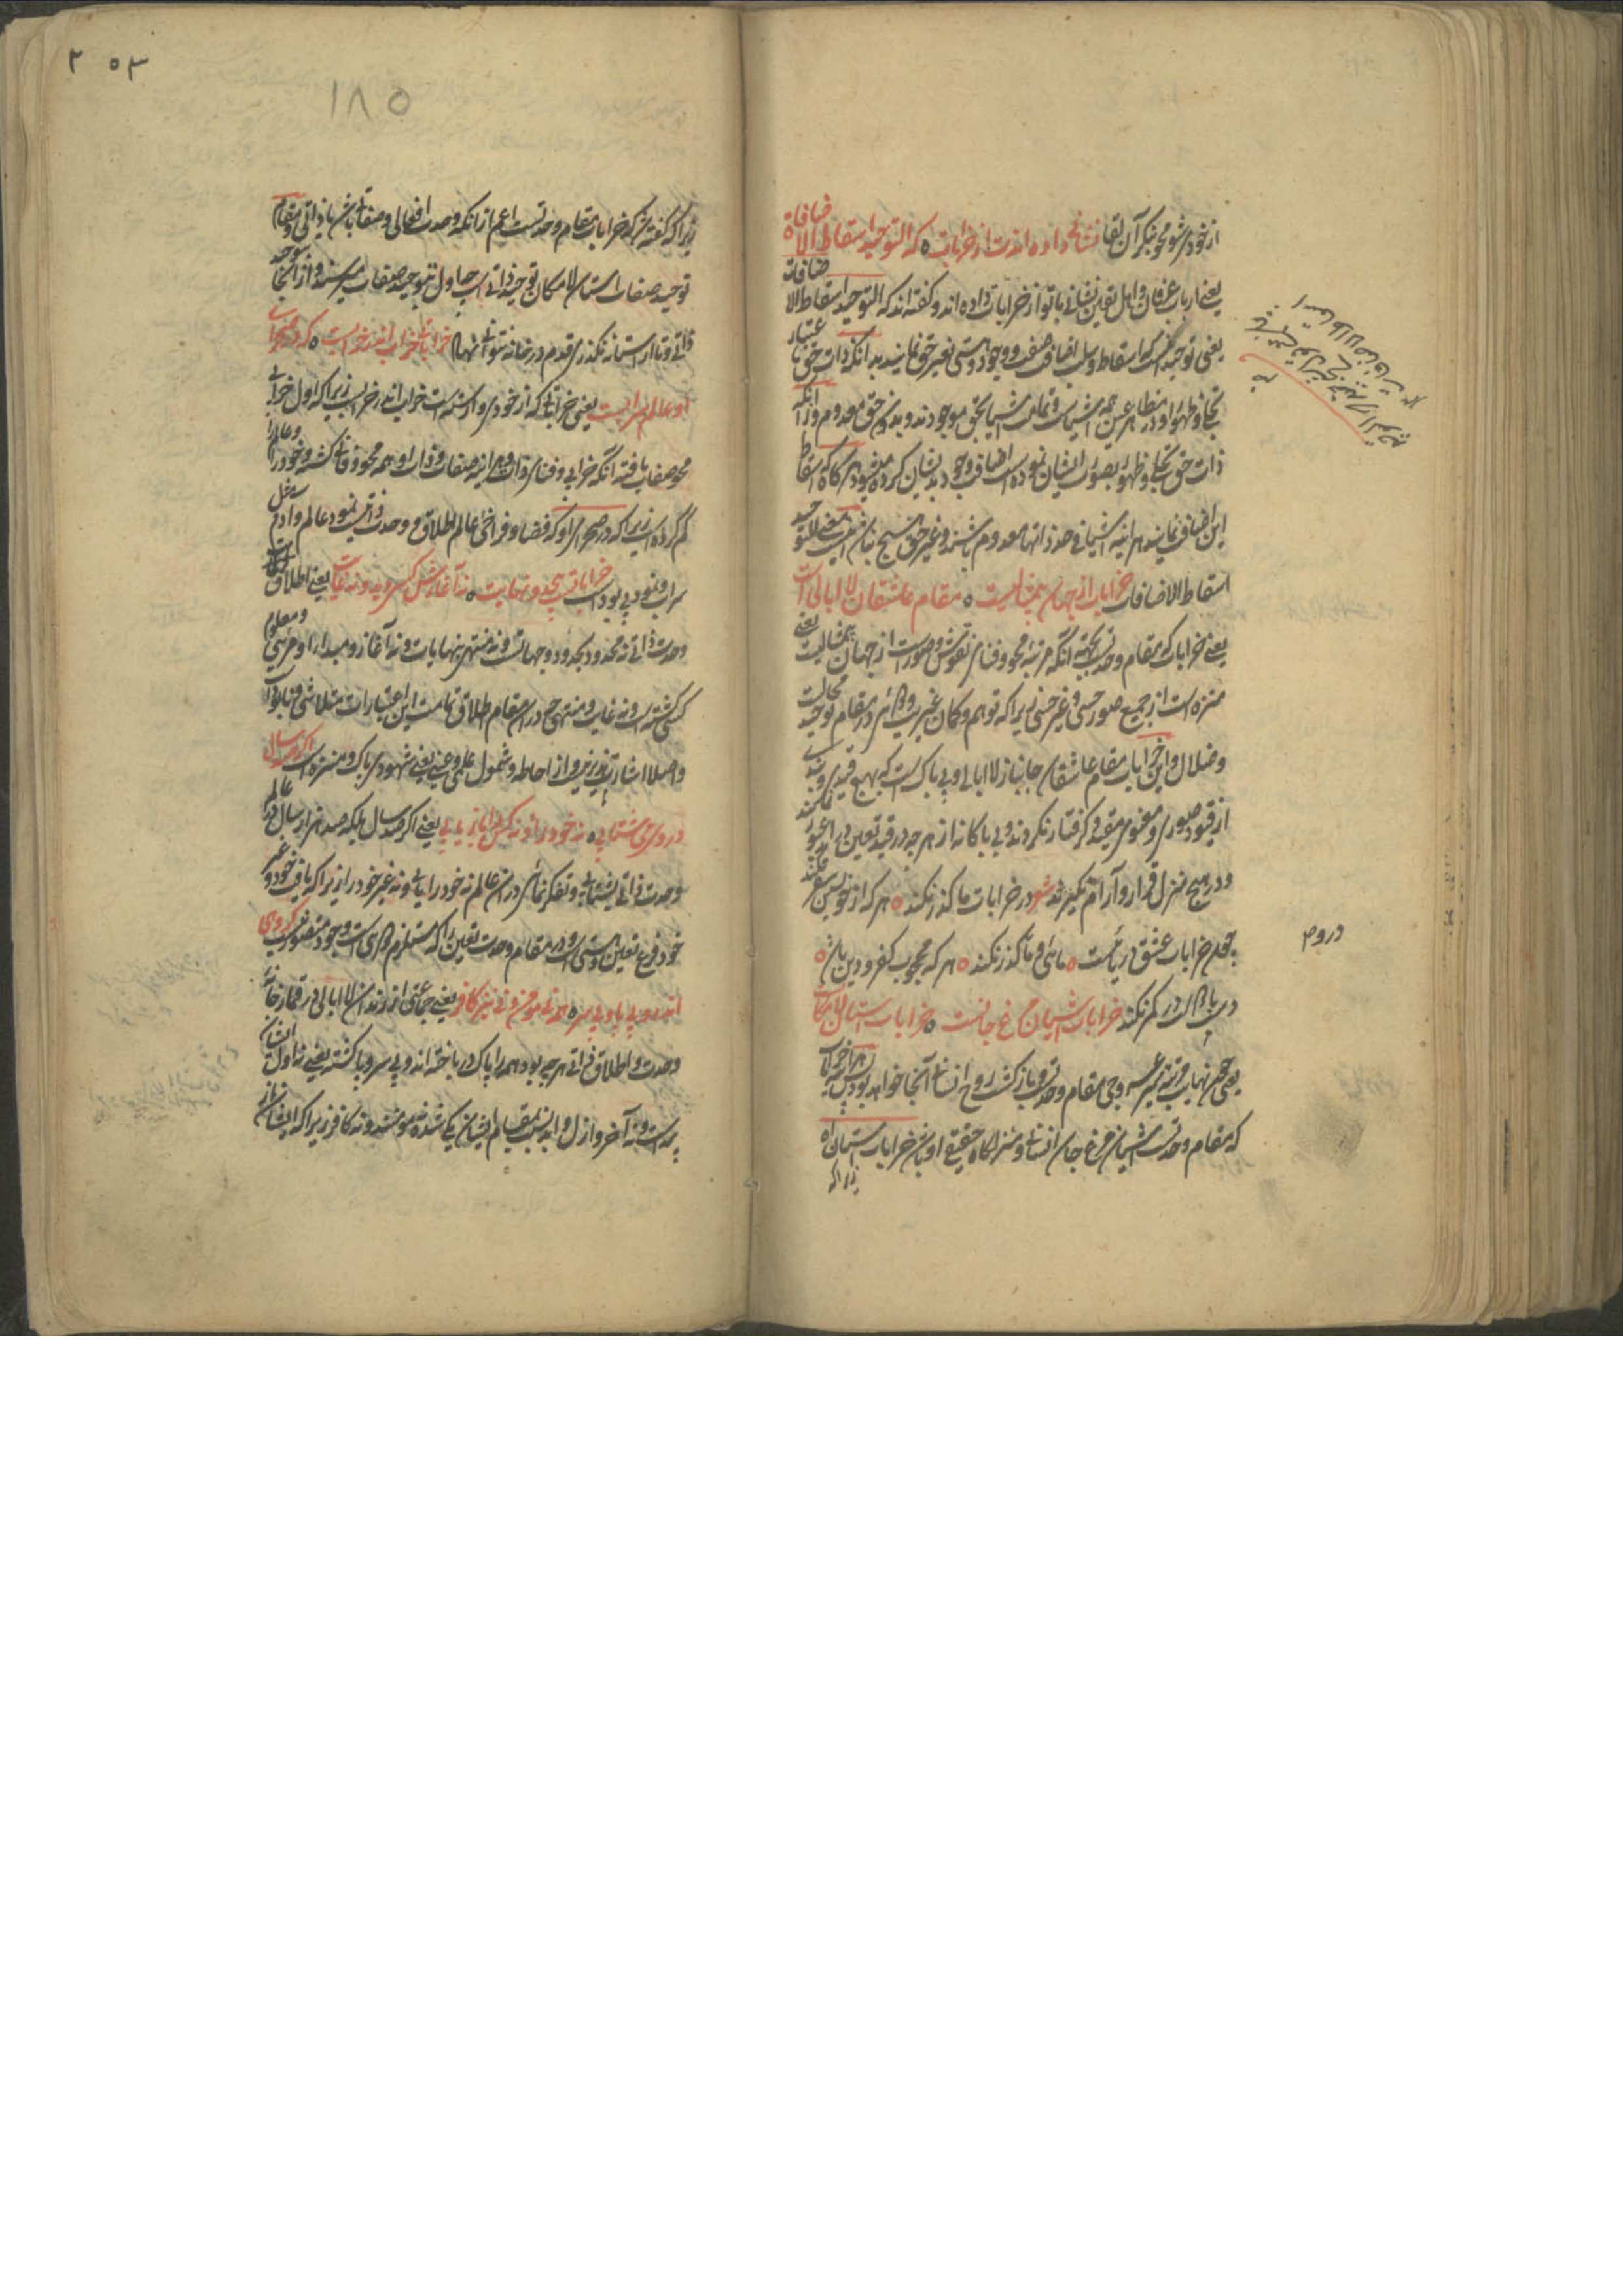 از خودی شو محو بنگر آن لقا نشانی داده اندت از خرابات ه که التوحید اسقاط الاضافات
یعنی ارباب عرفان و اهل یقین نشانی با تو از خرابات داده اند و گفته اند که التوحید اسقاط الاضافات
یعنی توحید آنست که اسقاط و سلب اضافت صفت و وجود و هستی بغیر حق نمایند بدانکه ذات حق باعتبار
تجلی و ظهور او در مظاهر عین همه اشیاست و تمامت اشیا بحق موجودند و بدون حق معدوم و از آنکه
ذات حق تجلی و ظهور بصورت ایشان نموده است اضافت وجود بدیشان کرده میشود هرگاه که اسقاط
این اضافت نمایند هرآینه اشیا فی حد ذاتها معدوم باشند و غیر حق هیچ نباشد اینست معنی التوحید
اسقاط الاضافات خرابات از جهان بیمثالیست ه مقام عاشقان لا ابالی است
یعنی خرابات که مقام وحدتست بجهت آنکه مرتبه محو و فنای نقوش و صورست از جهان بیمثالیست یعنی
منزه است از جمیع صور حسی و غیر حسی زیرا که توهم و گمان غیریت و در مقام توحید محالست
و ضلال و این خرابات مقام عاشقان جانباز لا ابالی و بی باک است که بهیچ قیدی و بندی
از قیود صوری و معنوی مقید و گرفتار نگردند و بی باکانه از هرچه در قید تعین در آید عبور نمایند
و در هیچ منزل قرار و آرام نگیرند شعر در خرابات ما گذر نکند ه هر که از خویشتن سفر نکند
چون خرابات عشق دریائیست ه مائی و ما گذر نکند ه هر که محجوب کفر و دین باشد ه
در گذر نکند خرابات آشیان مرغ جانست ه خرابات آستان لامکانست
یعنی چون نهایت مرتبه عروجی مقام وحدتست و بازگشت روح انسانی آنجا خواهد بود پس خرابات
که مقام وحدتست آشیان مرغ جان انسانی و منزلگاه حقیقی او باشد خرابات آستان
زیرا که
در وهم
۲۵۳
۱۸۵
زیرا که گفته شد که خرابات مقام وحدتست اعم از آنکه وحدت افعالی و صفاتی باشد یا ذاتی و مقام
توحید صفات آستان لامکان توحید ذاتی است چه اول بتوحید صفات میرسند و از آنجا بتوحید
ذاتی و تا از آستانه نگذری قدم در خانه نتوان نهاد خراباتی خراب اندر خرابست ه که در صحرای
او عالم سرابست یعنی خراباتی که از خودی وارسته است خراب اندر خرابست زیرا که اول خرابی
محو صفات یافته آنگه خرابی و فنای ذات و هرآینه صفات و ذات او همه محو و فانی گشته و خود را و عالم را
گم کرده است زیرا که در صحرای او که فضا و فراخی عالم اطلاق و وحدت ذاتیست نمود عالم و آدم
سراب و نمود بی بود است خراباتیست بیحد و نهایت ه نه آغازش کسی دیده نه غایت یعنی اطلاق
وحدت ذاتی نه محدود بحدود و جهاتست و نه منتهی بنهایات و نه آغاز و مبدأ او مرئی و معلوم
کسی گشته است و نه غایت و منتهی چه در آن مقام اطلاق تمامت این اعتبارات متلاشی و نابود است
و اصلا اشارت پذیر نیست و از احاطه و شمول علمی و عینی یعنی شهودی پاک و منزه است اگر صد سال
در وی میشتابی ه نه خود را و نه کس را باز یابی یعنی اگر صد سال بلکه صد هزار سال در عالم
وحدت ذاتی بشتابی و تفکر نمائی در آن عالم نه خود را یابی و نه غیر خود را زیرا که یافت خود و غیر
خود فرع تعین و هستی است و در مقام وحدت تعین را که مستلزم است وجود متصور نیست گروهی
اندرو بی پا و بی سر ه همه نه مؤمن و نه نیز کافر یعنی جماعتی از رندان لا ابالی در قمارخانه
وحدت و اطلاق ذاتی هرچه بود همه را پاک در باخته اند و بی سر و پا گشته یعنی نه اول ایشان
پدید است و نه آخر و ازل و ابد نسبت بمقام ایشان یکی شده نه مؤمنند و نه کافر زیرا که ایشان از